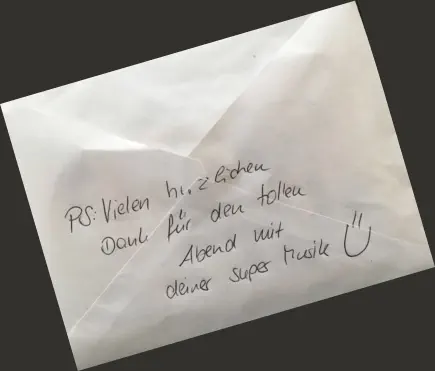 PS: Vielen herzlichen
Dank für den tollen
Abend mit
deiner super Musik